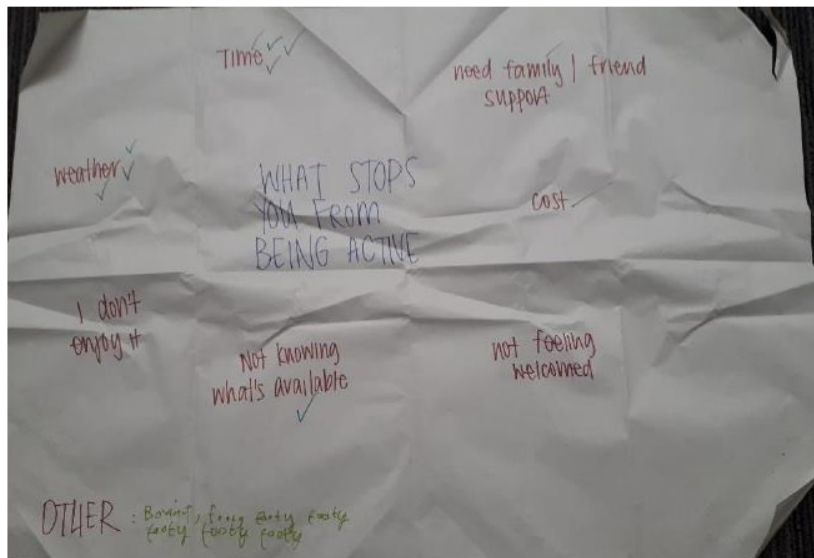 Time
need family / friend
support
weather
WHAT STOPS
YOU FROM
BEING ACTIVE
cost
I don't
enjoy it
Not knowing
what's available
not feeling
welcomed
OTHER : footy footy
footy footy footy